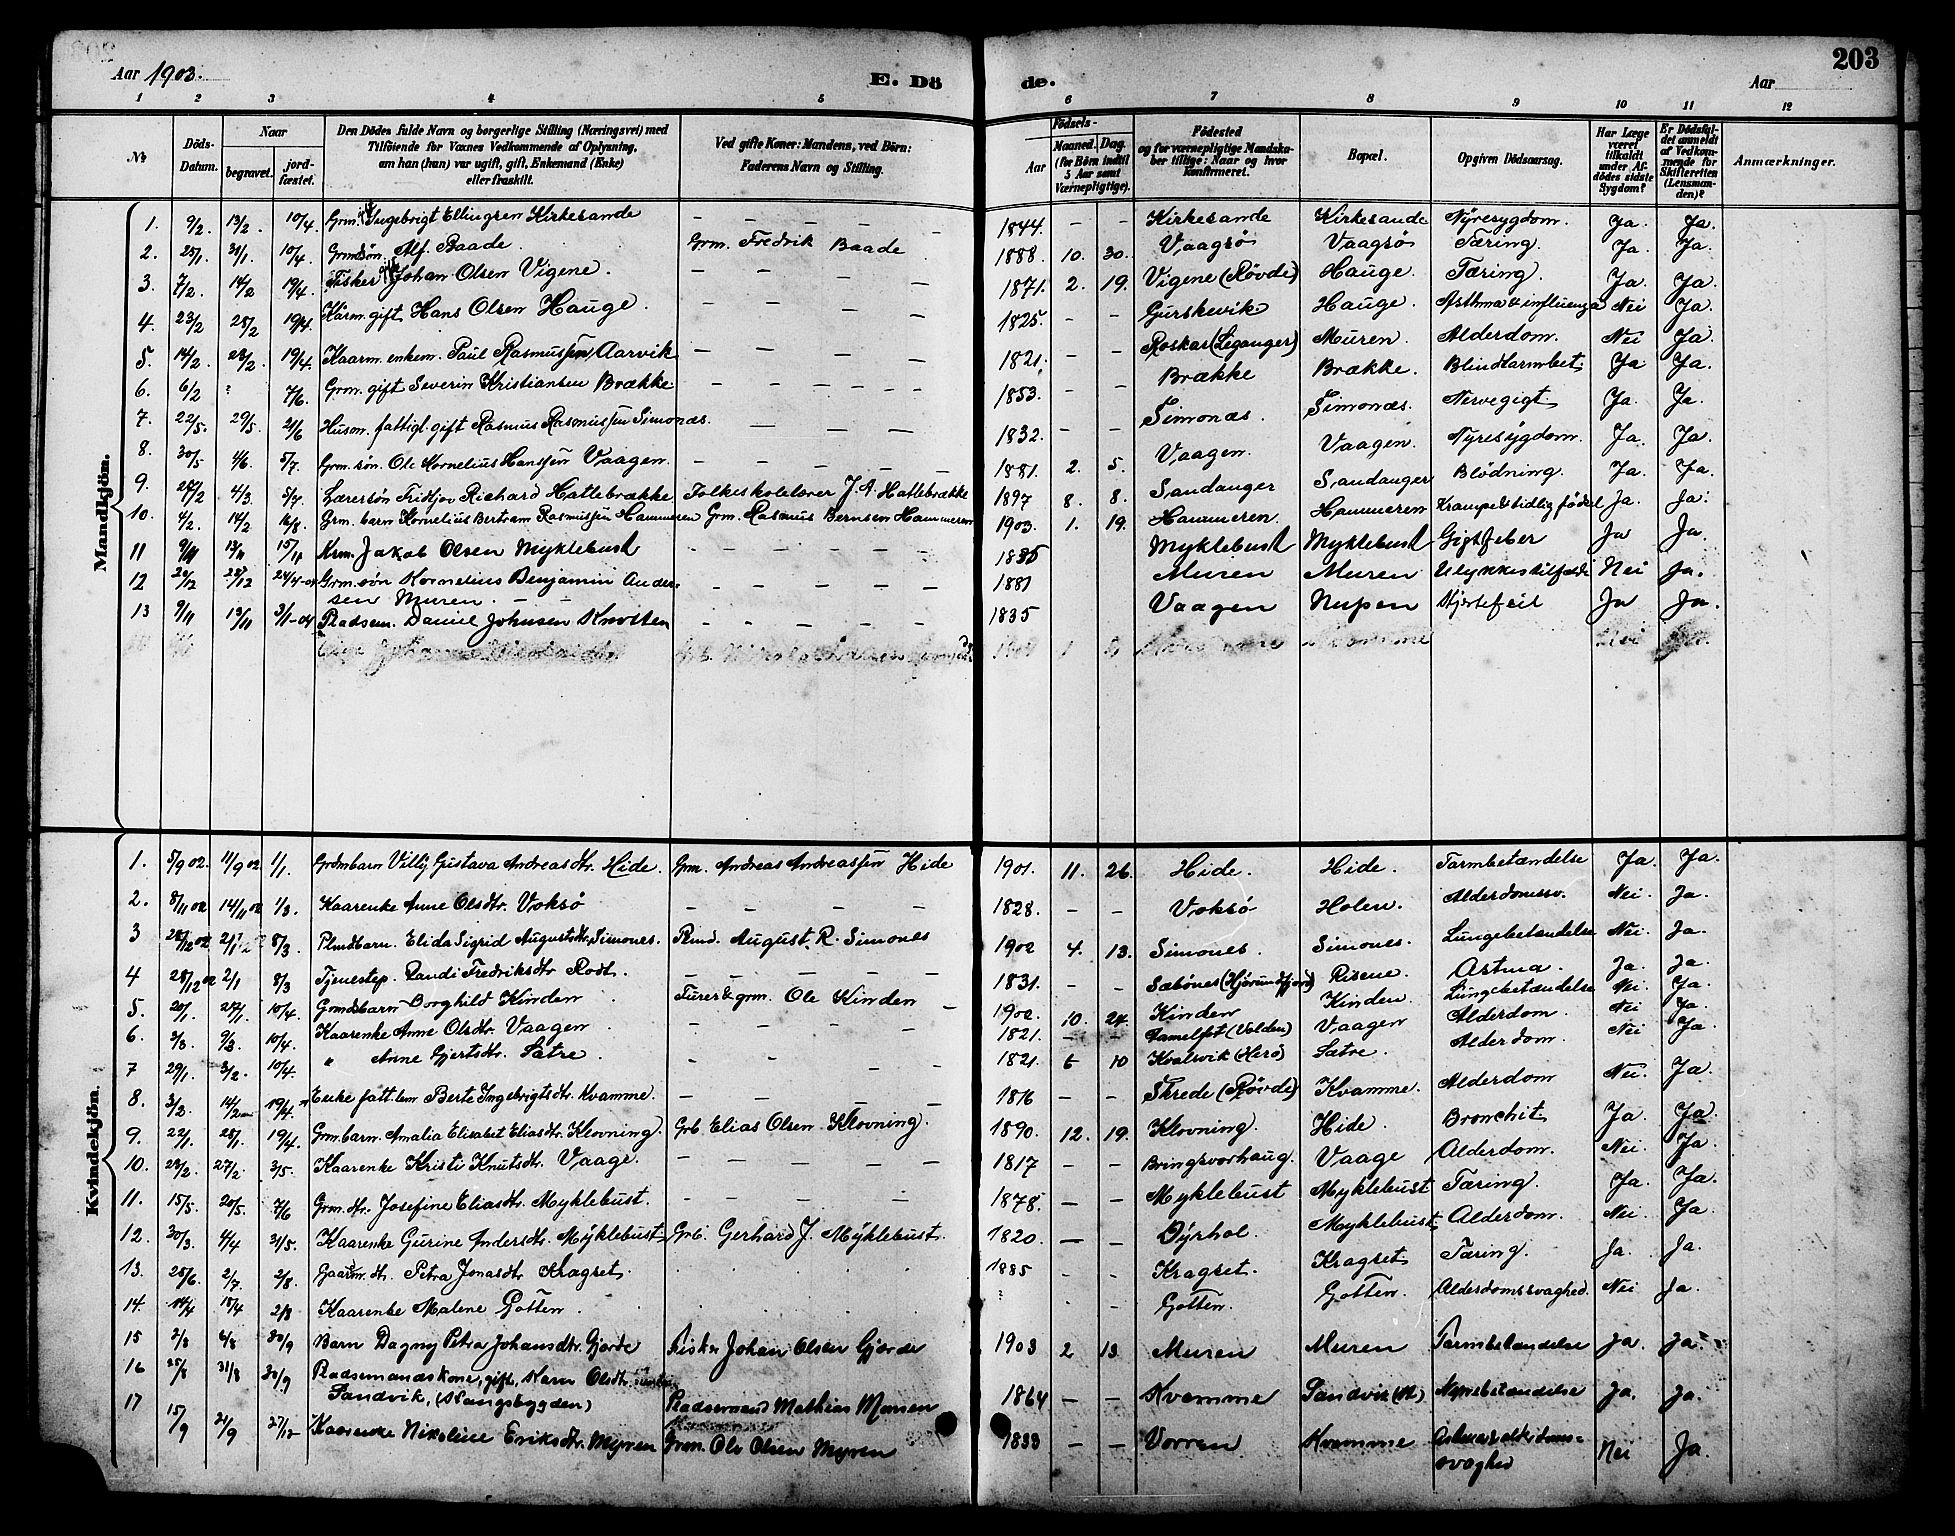 203
Aar 1903.
E. Dö de.
Aar
1 2 3 4 5 6 7 8 9 10 11 12
No
Döds-Datum.
Naar
begravet.
jordfæstet.
Den Dödes fulde Navn og borgerlige Stilling (Næringsvei) med Tilföiende for Voxnes Vedkommende af Oplysning, om han (hun) var ugift, gift, Enkemand (Enke) eller fraskilt.
Ved gifte Koner: Mandens, ved Börn: Faderens Navn og Stilling.
Födsels-
Aar
Maaned. Dag.
(for Börn indtil 5 Aar samt Værnepligtige).
Födested og for værnepligtige Mandskaber tillige: Naar og hvor konfirmeret.
Bopæl.
Opgiven Dödsaarsag.
Har Læge været tilkaldt under Afdödes sidste Sygdom?
Er Dödsfaldet anmeldt af Vedkommende for Skifteretten (Lensmanden)?
Anmærkninger.
Mandkjön.
1. 9/2. 13/2. 10/4 Grm. Ingebrigt Ellingsen Kirkesande — — — 1844. — — Kirkesande Kirkesande Nyresygdom. Ja. Ja.
2. 25/1. 31/1. 10/4. Grmdsön. Alf. Baade. Grm. Fredrik Baade 1888. 10. 30. Vaagsö Vaagsö Tæring. Ja. Ja.
3. 7/2. 14/2 19/4. Fisker Johan Olsen Vigene. — — — 1871. 2. 19. Vigene (Rövde) Hauge. Tæring. Ja. Ja.
4. 23/2 28/2 19/4. Kårm. gift Hans Olsen Hauge. — — — 1825. — — Gurskevik. Hauge. Asthma & influenza Nei Ja.
5. 14/2. 23/2. 19/4. Kaarm. enkem. Paul Rasmussen Aarvik — — — 1821. — — Roskar (Leganger) Muren. Alderdom. Nei Ja.
6. 6/2 " 7/6. Grm. gift Severin Kristiansen Brække. — — — 1853. — — Brække Brække. Blindtarmbet. Ja Ja.
7. 22/5. 29/5. 21/6 Husm. fattigl. gift Rasmus Rasmussen Simonæs. — — — 1832. — — Simonæs. Simonæs. Nervegigt. Ja. Ja.
8. 30/5 4/6. 5/7. Grm. sön. Ole Kornelius Hanssen Vaagen. — — — 1881. 2. 5. Vaagen. Vaagen. Nyresygdom. Ja. Ja.
9. 24/2 4/3. 5/7. Lærersön Fridtjov Richard Hatlebrække Folkeskolelærer J. A. Hatlebrække 1897 8. 8. Sandanger Sandanger Blödning. Ja. Ja.
10. 4/2. 14/2 16/8. Grm. barn Kornelius Bertram Rasmussen Hammeren Grm. Rasmus Berntsen Hammeren 1903. 1. 19. Hammeren. Hammeren Krampe & tidlig födsel Ja. Ja.
11 9/11 13/11 15/11 Krm. Jakob Olsen Myklebust — — — 1835 Myklebust Myklebust Gigtfeber Ja Ja.
12 20/12 28/12 24/4-04 Grm. sön Kornelius Benjamin Andersen Muren. — — — 1881 Muren Muren Ulykkestilfælde Nei Ja.
13 9/11 13/11 3/1-04 Pladsem. Daniel Johnsen Knotten — — — 1835 Vaagen Nupen Hjertefeil Ja Ja.
Kvindekjön.
1. 5/9 02. 11/9 02 1/1. Grdmbarn Villy Gustava Andreasdtr. Hide. Grm. Andreas Andreassen Hide 1901. 11. 26. Hide. Hide. Tarmbetændelse Ja. Ja.
2. 8/11 02 14/11 02 1/3. Kaarenke Anne Olsdtr. Voksö — — — 1828. — — Voksö Holen. Alderdomssv. Nei. Ja.
3 28/12 02 2/1 8/3. Plmdbarn. Elida Sigrid Augustsdtr. Simones. Plmd. August. R. Simones 1902 4. 13. Simones. Simones. Lungebetændelse Nei. Ja.
4 28/12 02 2/1 8/3 Tjenestep. Randi Fredriksdtr Rodt. — — — 1831. — — Sæbönes (Hjörundfjord) Risene. Astma. Ja. Ja.
5. 20/1. 27/1. 10/4. Grmdsbarn Borghild Kinden Furer & grm. Ole Kinden 1902. 10 24. Kinden Kinden. Lungebetændelse Nei. Ja.
6. 3/3. 9/3. 10/4. Kaarenke Anne Olsdtr. Vaagen — — — 1821. — — (Volden) Vaagen Alderdom. Nei Ja
7 29/1. 3/2. 10/4. " Anne Gjertsdtr. Sætre. — — — 1821. 6 10 Kvalsvik (Herö) Sætre. Alderdom. Nei Ja.
8. 3/2. 14/2 19/4. Enke fatt.lem Berte Ingebrigtsdtr. Kvamme. — — — 1816 — — Skrede (Rövde) Kvamme. Alderdom Nei. Ja
9. 22/1. 28/1. 19/4. Grm. barn. Amalia Elisabet Eliasdtr. Klovning. Grb. Elias Olsen Klovning. 1890. 12. 19. Klovning. Hide. Bronchit. Ja. Ja.
10. 23/2. 27/2. 3/5. Kaarenke Kristi Knutsdtr. Vaage. — — — 1817 — — Bringsvorhaug. Vaage Alderdom. Nei. Ja
11. 15/5. 20/5. 7/6 Grm. dtr. Josefine Eliasdtr. Myklebust. — — — 1878. — — Myklebust Myklebust Tæring. Ja. Ja.
12. 30/3. 4/4 3/5. Kaarenke Gurine Andersdtr. Myklebust. Grb. Gerhard J. Myklebust. 1820. — — Dyrhol. Myklebust. Alderdom. Nei. Ja.
13. 25/6. 2/7. 2/8. Gaarm. dtr. Petra Jonasdtr Kragset. 1885 — — Kragset. Kragset Tæring. Ja. Ja.
14. 14/4 18/4 2/8 Kaarenke Malene Gotten. ? — Gotten. Gotten. Alderdomssvaghed. Nei Ja.
15 2/8 6/8 20/9 Barn Dagny Petra Johansdtr. Gjerde Fisker Johan Olsen Gjerde 1903 2 13 Muren Muren Tarmbetændelse Ja Ja.
16 25/8 31/8 20/9 Pladsemandskone, gift, Karn Olsdtr. Sandvik, (Vangsbygden) Pladsemand Mathias Mursen 1864 — — Kvamme Sandvik Nyrebetændelse Ja. Ja.
17 15/9 21/9 27/12 Kaarenke Nikoline Eriksdtr. Myren Grm. Ole Olsen Myren 1833 — — Vorren Kvamme svaghed Nei Ja